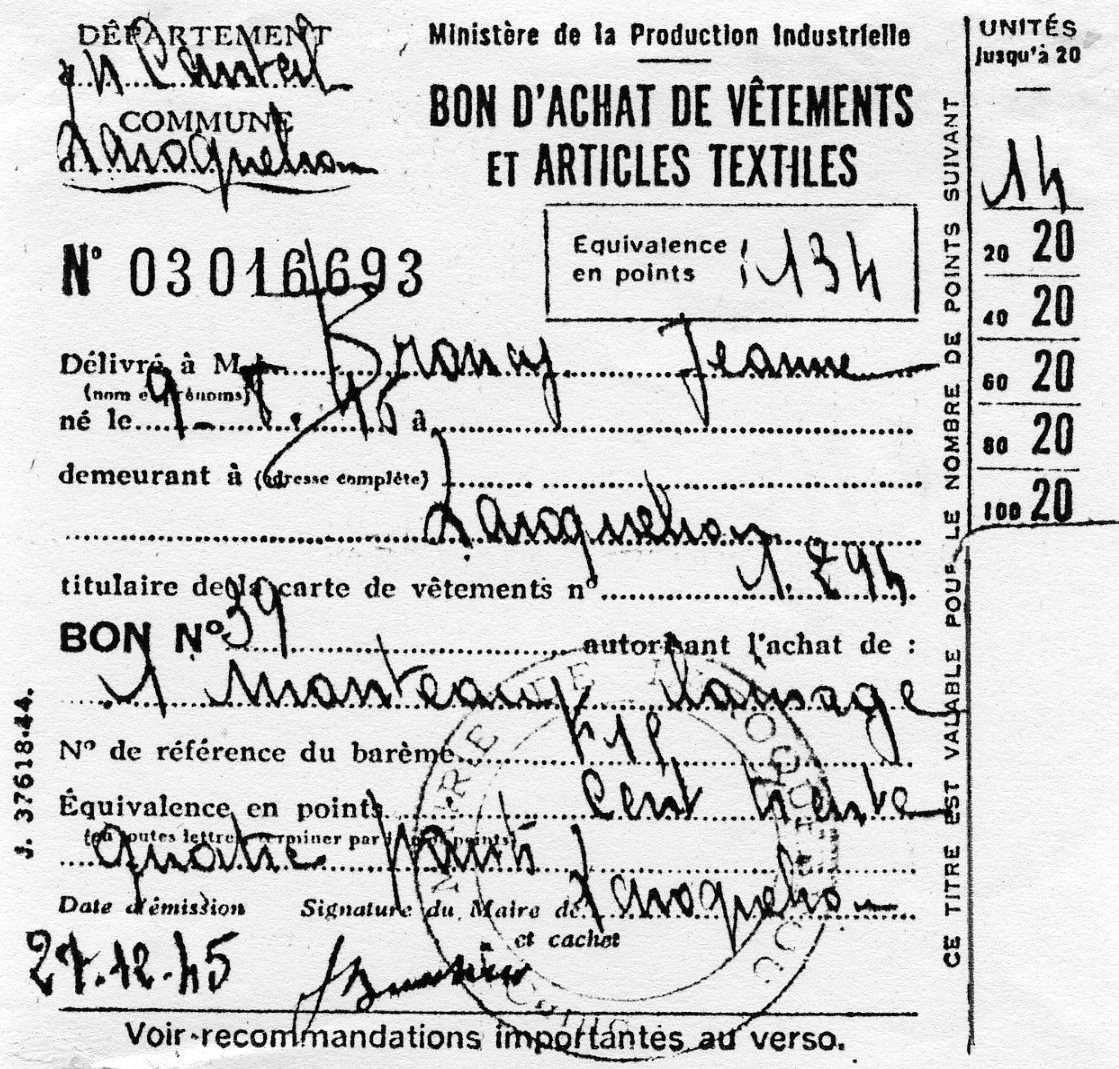 DÉPARTEMENT
du Cantal
COMMUNE
Laroquevieille
Ministère de la Production Industrielle
BON D'ACHAT DE VÊTEMENTS
ET ARTICLES TEXTILES
N° 03016693
Equivalence
en points : 134
Délivré à M Jeanne
(nom et prénoms)
né le 9 à
demeurant à (adresse complète)
titulaire de la carte de vêtements n° 1.294
BON N° 39 autorisant l'achat de :
1 manteau lainage
N° de référence du barème
Équivalence en points cent trente
(en toutes lettres terminer par points)
quatre points
Date d'émission Signature du Maire de
et cachet
27.12.45
Voir recommandations importantes au verso.
J. 37618-44.
CE TITRE EST VALABLE POUR LE NOMBRE DE POINTS SUIVANT
UNITÉS
Jusqu'à 20
14
20 20
40 20
60 20
80 20
100 20
MAIRIE DE